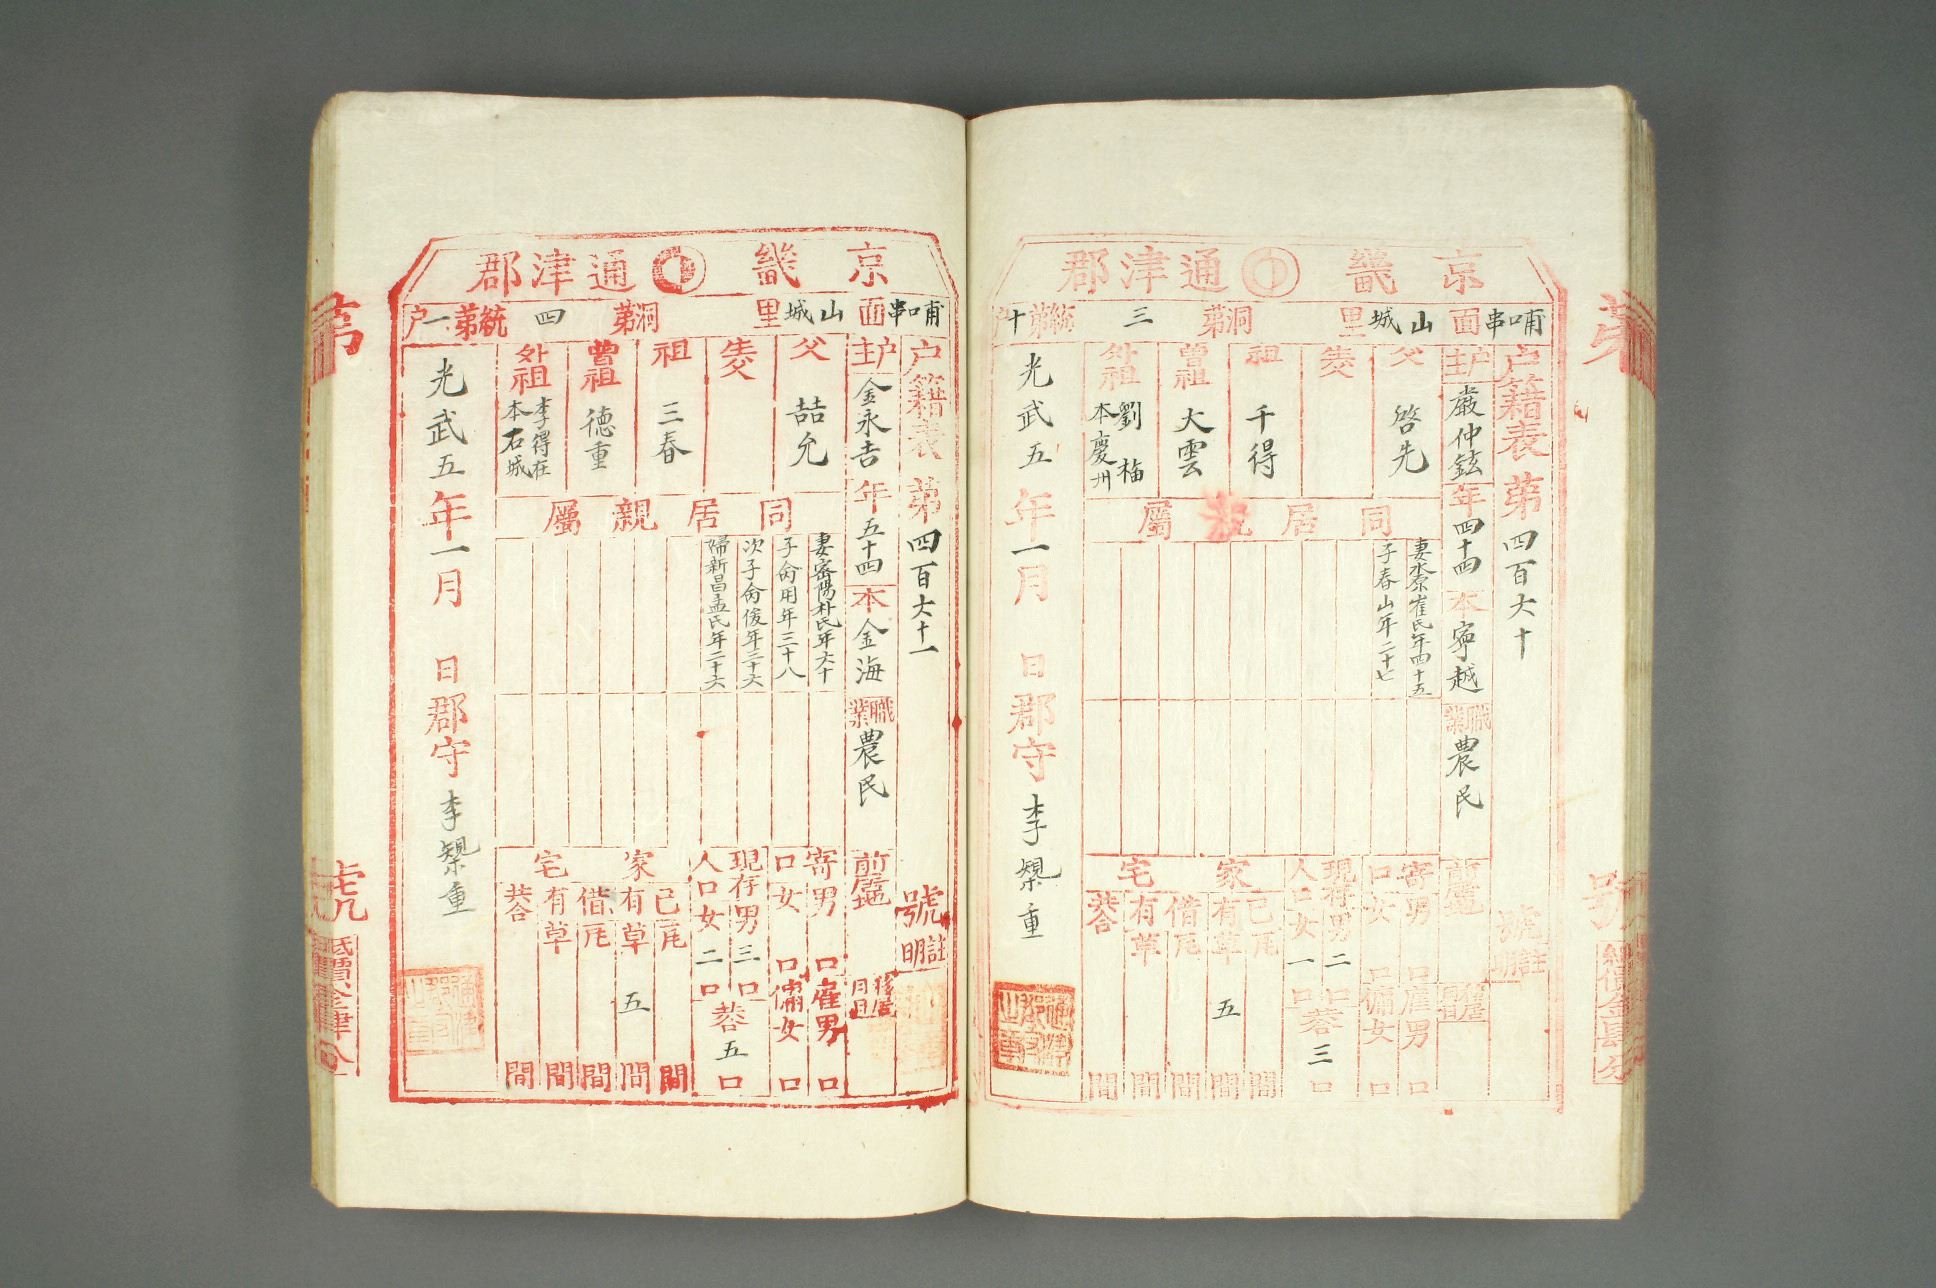 京畿 通津郡
哺口串面 山城里 洞第三 統第十户
户籍表 第四百六十 號
註明
户主 嚴仲鉉 年四十四 本寧越 職業 農民
前居地
移居月日
父 啓先
生父
祖 千得
曾祖 大雲
外祖 劉梅 本慶州
同居親屬
妻水原崔氏年四十五
子春山年二十七
寄口 男 口 女 口
雇男 口 傭女 口
現存人口 男二口 女一口 共三口
家宅
己有 瓦 間 草五間
借有 瓦 間 草 間
共合 間
光武五年一月 日 郡守 李槼重
京畿 通津郡
哺口串面 山城里 洞第四 統第一户
户籍表 第四百六十一 號
註明
户主 金永吉 年五十四 本金海 職業 農民
前居地
移居月日
父 喆允
生父
祖 三春
曾祖 德重
外祖 李得在 本石城
同居親屬
妻密陽朴氏年六十
子俞用年三十八
次子俞俊年二十六
婦新昌孟氏年二十六
寄口 男 口 女 口
雇男 口 傭女 口
現存人口 男三口 女二口 共五口
家宅
己有 瓦 間 草五間
借有 瓦 間 草 間
共合 間
光武五年一月 日 郡守 李槼重